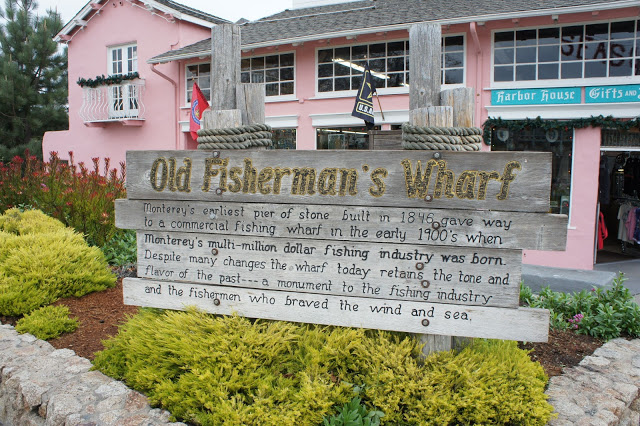 Harbor House Gifts and
Old Fisherman's Wharf
Monterey's earliest pier of stone built in 1846 gave way
to a commercial fishing wharf in the early 1900's when
Monterey's multi-million dollar fishing industry was born.
Despite many changes the wharf today retains the tone and
flavor of the past---a monument to the fishing industry
and the fishermen who braved the wind and sea.